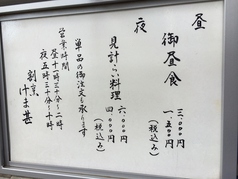 昼
御昼食
三、〇〇〇円
一、五〇〇円
(税込み)
夜
見計らい料理
六、〇〇〇円
四、〇〇〇円
(税込み)
単品の御注文も承ります
営業時間
昼十一時三十分〜二時
夜五時三十分〜十時
割烹